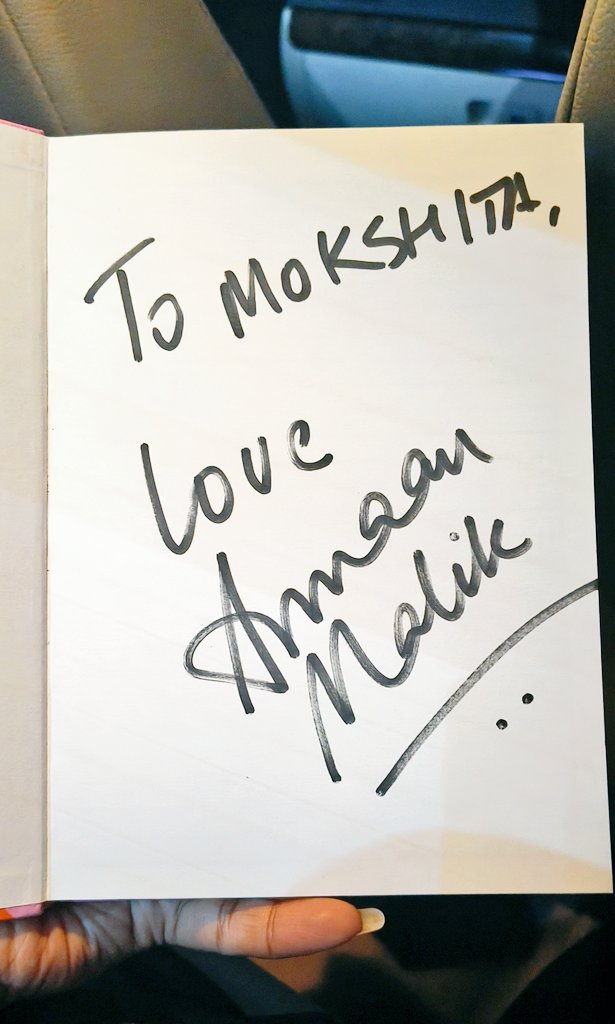 To MOKSHITA,
Love
Amaan
Malik